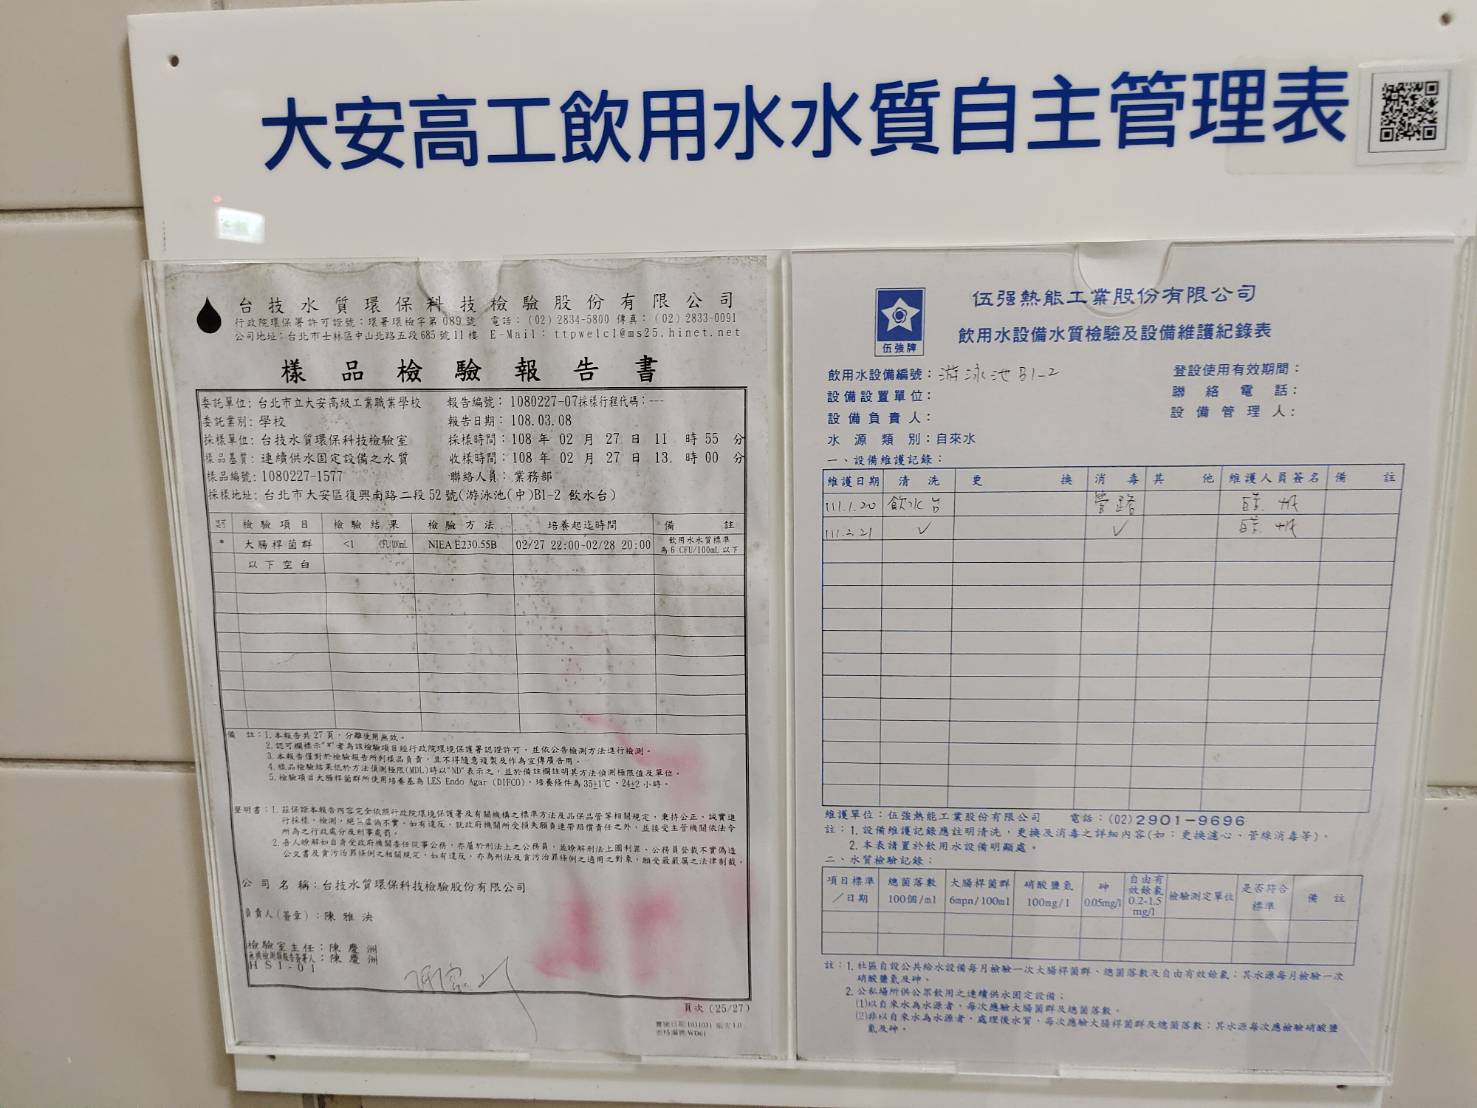 大安高工飲用水水質自主管理表
台技水質環保科技檢驗股份有限公司
行政院環保署許可證號：環署環檢字第089號 電話：(02) 2834-5800 傳真：(02) 2833-0091
公司地址：台北市士林區中山北路五段685號11樓 E-Mail：ttpwelc1@ms25.hinet.net
樣品檢驗報告書
委託單位：台北市立大安高級工業職業學校 報告編號：1080227-07採樣行程代碼：---
委託業別：學校 報告日期：108.03.08
採樣單位：台技水質環保科技檢驗室 採樣時間：108 年 02 月 27 日 11 時 55 分
樣品基質：連續供水固定設備之水質 收樣時間：108 年 02 月 27 日 13. 時 00 分
樣品編號：1080227-1577 聯絡人員：業務部
採樣地址：台北市大安區復興南路二段52號(游泳池(中)B1-2 飲水台)
檢驗項目 檢驗結果 檢驗方法 培養起迄時間 備註
* 大腸桿菌群 <1 CFU/100mL NIEA E230.55B 02/27 22:00~02/28 20:00 飲用水水質標準
為6 CFU/100mL 以下
以下空白
備 註：1.本報告共27頁，分離使用無效。
2.認可欄標示"*"者為該檢驗項目經行政院環境保護署認證許可，並依公告檢測方法進行檢測。
3.本報告僅對於檢驗報告所列樣品負責，且不得隨意複製及作為宣傳廣告用。
4.樣品檢驗結果低於方法偵測極限(MDL)時以"ND"表示之，並於備註欄註明其方法偵測極限值及單位。
5.檢驗項目大腸桿菌群所使用培養基為LES Endo Agar (DIFCO)，培養條件為35±1℃，24±2 小時。
聲明書：1.茲保證本報告內容完全依照行政院環境保護署及有關機構之標準方法及品保品管等相關規定，秉持公正、誠實進
行採樣、檢測，絕無虛偽不實，如有違反，就政府機關所受損失願負連帶賠償責任之外，並接受主管機關依法令
所為之行政處分及刑事處罰。
2.吾人瞭解如自身受政府機關委任從事公務，亦屬於刑法上之公務員，並瞭解刑法上圖利罪、公務員登載不實偽造
公文書及貪污治罪條例之相關規定，如有違反，亦為刑法及貪污治罪條例之適用之對象，願受最嚴厲之法律制裁。
公司名稱：台技水質環保科技檢驗股份有限公司
負責人(簽章)：陳雅泱
檢驗室主任：陳慶洲
陳慶洲
HSI-01
頁次 (25/27)
伍強牌
伍强熱能工業股份有限公司
飲用水設備水質檢驗及設備維護紀錄表
飲用水設備編號：游泳池B1-2 登設使用有效期間：
設備設置單位： 聯絡電話：
設備負責人： 設備管理人：
水源類別：自來水
一、設備維護記錄：
維護日期 清洗 更換 消毒 其他 維護人員簽名 備註
111.1.20 飲水台 管路
111.2.21 ✓ ✓
維護單位：伍強熱能工業股份有限公司 電話：(02)2901-9696
註：1.設備維護記錄應註明清洗，更換及消毒之詳細內容(如：更換濾心、管線消毒等)。
2.本表請置於飲用水設備明顯處。
二、水質檢驗記錄：
項目標準／日期 總菌落數 100個/ml 大腸桿菌群 6mpn/100ml 硝酸鹽氮 100mg/l 砷 0.05mg/l 自由有效餘氯 0.2-1.5 mg/l 檢驗測定單位 是否符合標準 備註
註：1.社區自設公共給水設備每月檢驗一次大腸桿菌群、總菌落數及自由有效餘氯；其水源每月檢驗一次
硝酸鹽氮及砷。
2.公私場所供公眾飲用之連續供水固定設備；
(1)以自來水為水源者，每次應驗大腸菌群及總菌落數。
(2)非以自來水為水源者，處理後水質，每次應驗大腸桿菌群及總菌落數；其水源每次應檢驗硝酸鹽
氮及砷。